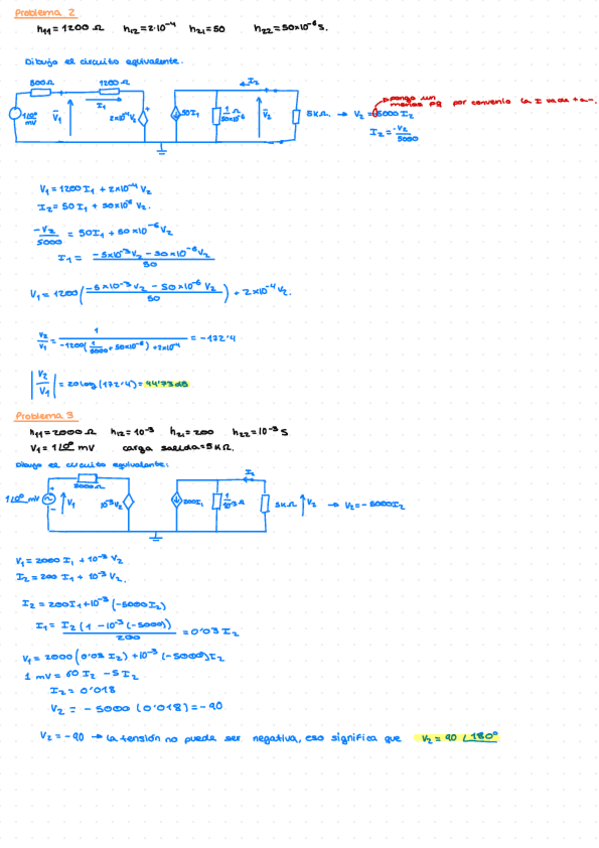 Problema 2
h11 = 1200 Ω h12 = 2·10⁻⁴ h21 = 50 h22 = 50×10⁻⁶ S.
Dibujo el circuito equivalente.
800Ω 1200 Ω I2
1∠0° mV V1 I1 2×10⁻⁴V2 50I1 1/50×10⁻⁶ Ω V2 5KΩ. → V2 = -5000 I2
pongo un menos PQ por convenio la I va de + a -.
I2 = -V2/5000
V1 = 1200 I1 + 2×10⁻⁴ V2
I2 = 50 I1 + 50×10⁻⁶ V2.
-V2/5000 = 50I1 + 50×10⁻⁶ V2
I1 = (-5×10⁻³V2 - 50×10⁻⁶V2)/50
V1 = 1200 ((-5×10⁻³ V2 - 50×10⁻⁶ V2)/50) + 2×10⁻⁴ V2.
V2/V1 = 1/(-1200(1/5000 + 50×10⁻⁶) + 2×10⁻⁴) = -172'4
|V2/V1| = 20 log (172'4) = 44'73 dB
Problema 3
h11 = 2000 Ω h12 = 10⁻³ h21 = 200 h22 = 10⁻³ S
V1 = 1∠0° mV carga salida = 5KΩ.
Dibujo el circuito equivalente:
1∠0° mV V1 2000Ω 10⁻³V2 200I1 1/10⁻³ Ω I2 5KΩ V2 → V2 = -5000I2
V1 = 2000 I1 + 10⁻³ V2
I2 = 200 I1 + 10⁻³ V2.
I2 = 200I1 + 10⁻³ (-5000I2)
I1 = I2 (1 - 10⁻³ (-5000))/200 = 0'03 I2
V1 = 2000 (0'03 I2) + 10⁻³ (-5000)I2
1 mV = 60 I2 - 5I2
I2 = 0'018
V2 = -5000 (0'018) = -90
V2 = -90 → la tensión no puede ser negativa, eso significa que V2 = 90 ∠180°